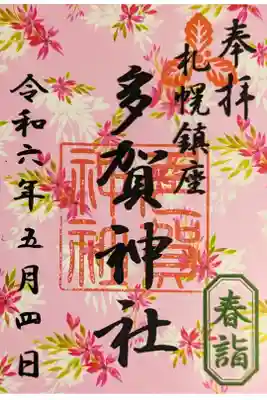 奉拝
札幌鎮座
多賀神社
令和六年五月四日
春詣
多賀神社